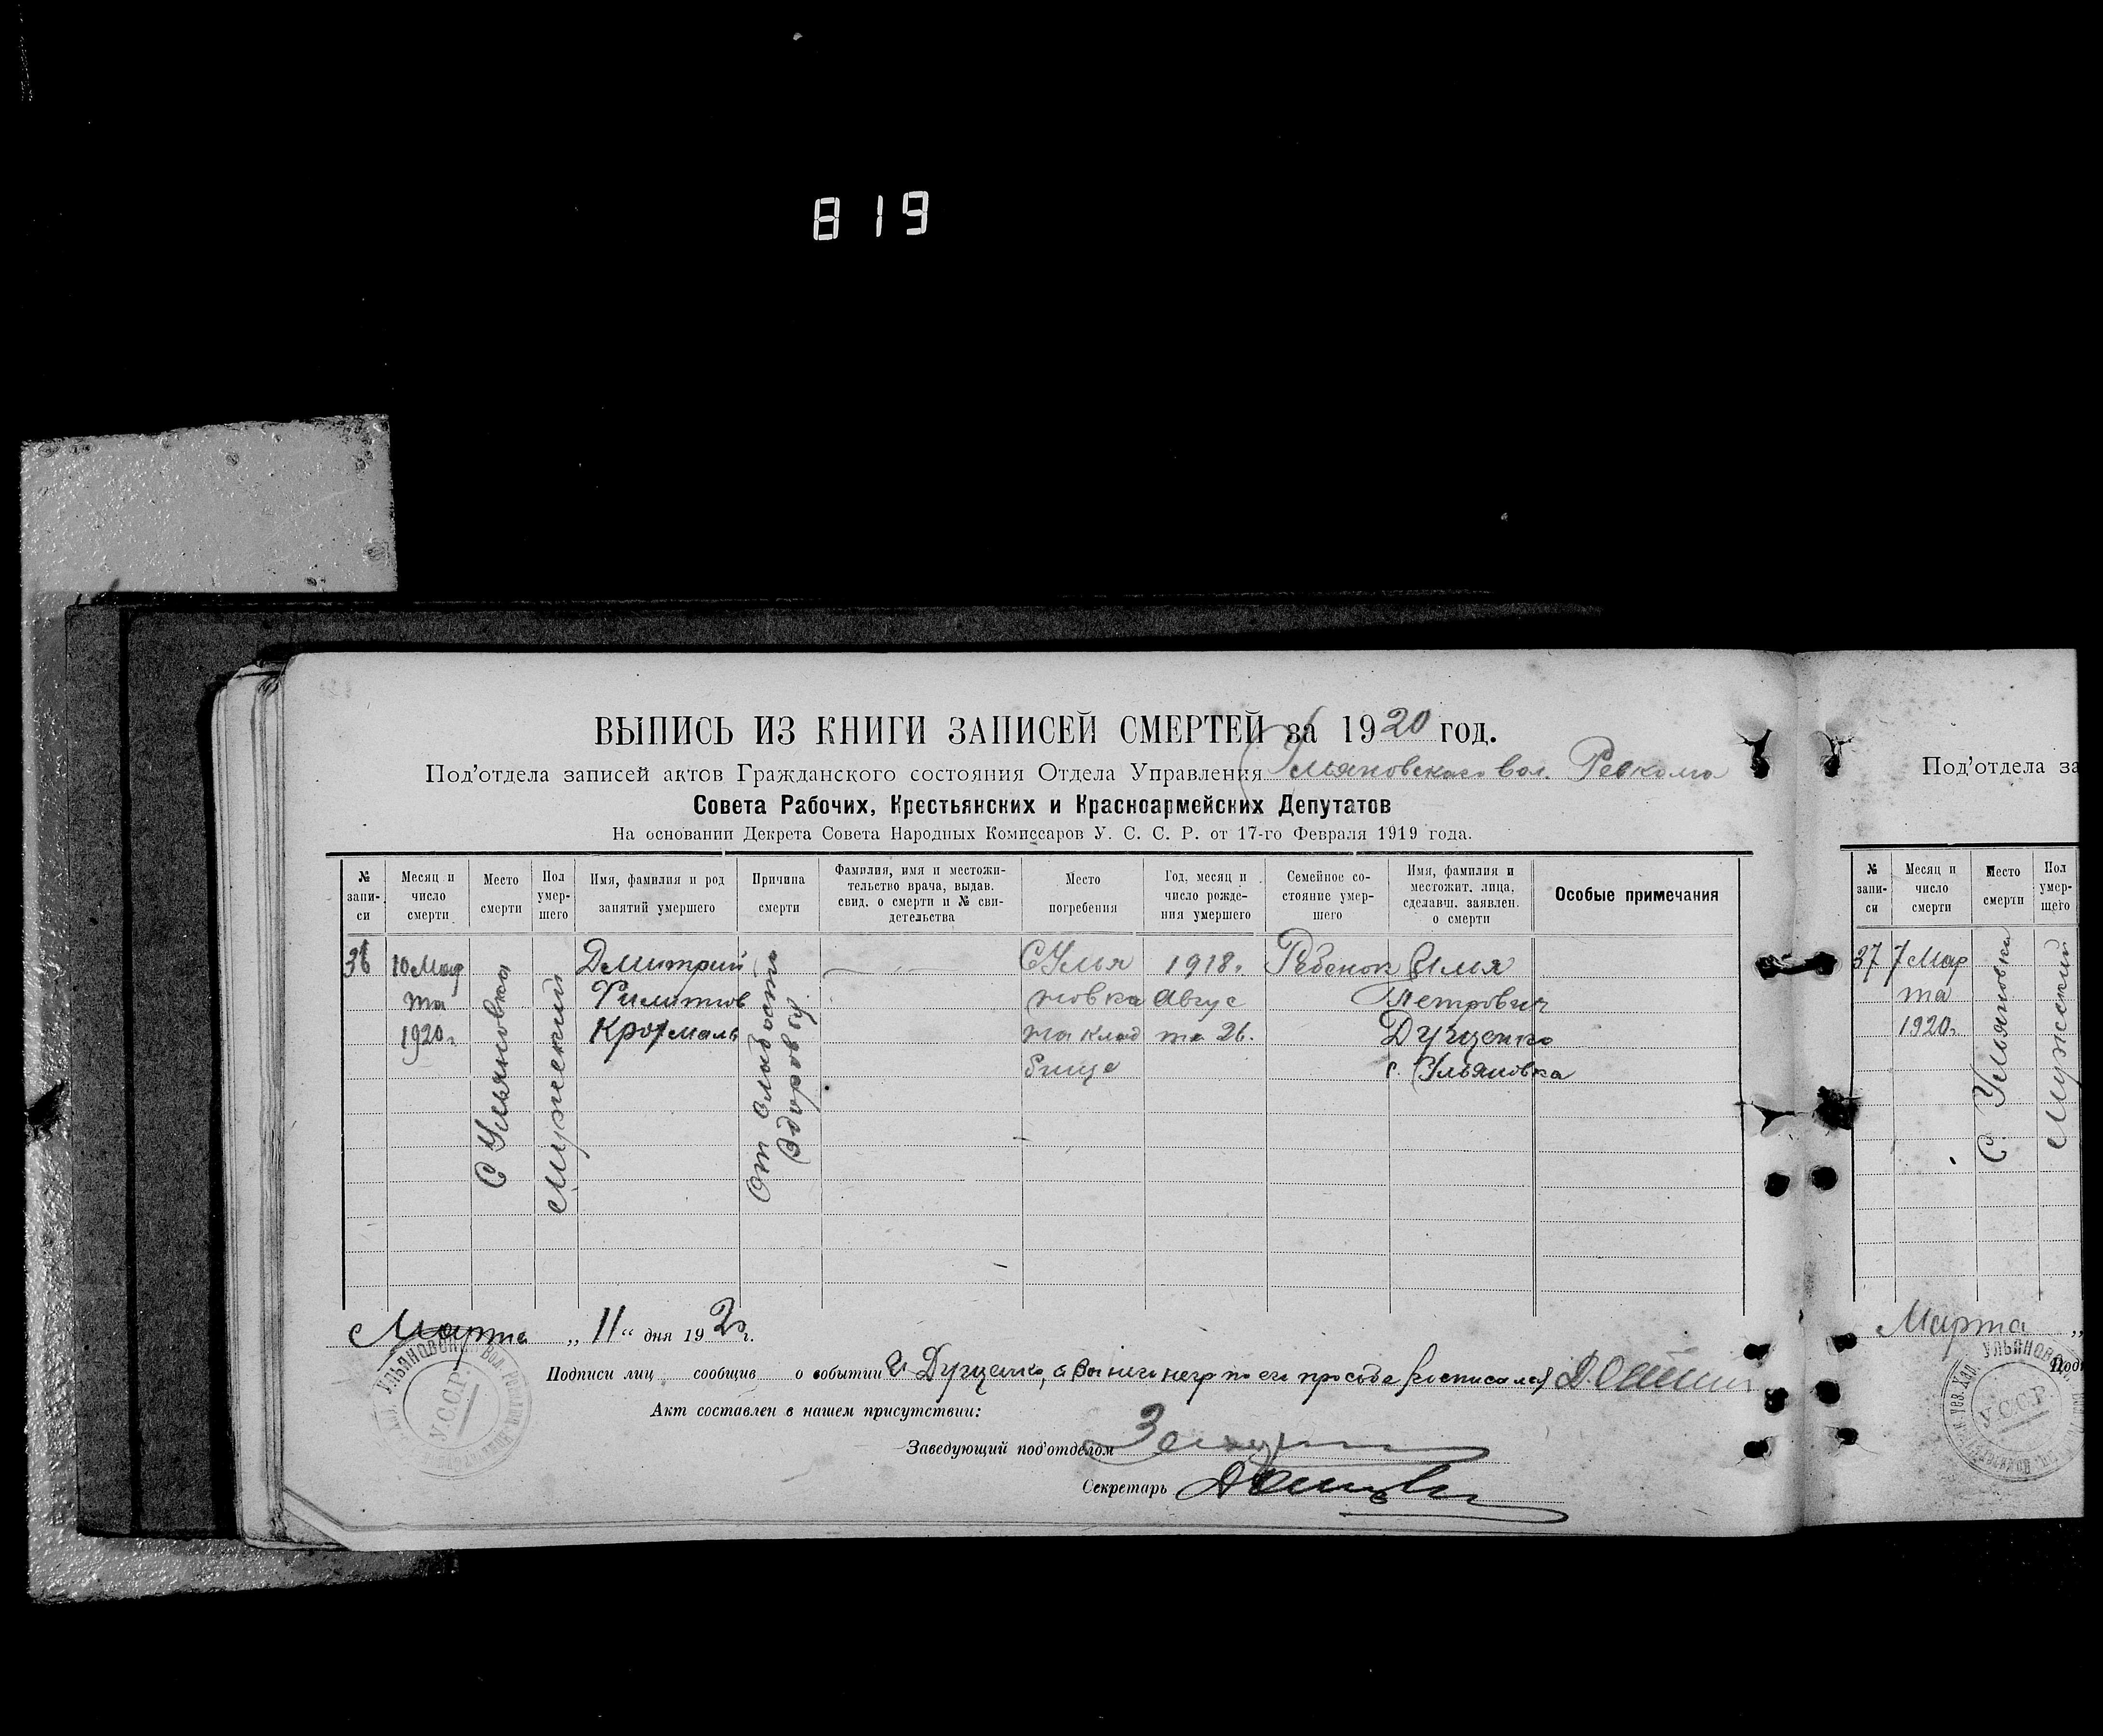 819
ВЫПИСЬ ИЗ КНИГИ ЗАПИСЕЙ СМЕРТЕЙ за 1920 год.
Под'отдела записей актов Гражданского состояния Отдела Управления Ульяновского вол. Ревкома
Совета Рабочих, Крестьянских и Красноармейских Депутатов
На основании Декрета Совета Народных Комиссаров У. С. С. Р. от 17-го Февраля 1919 года.
№ запи-
си
Месяц и
число
смерти
Место
смерти
Пол
умер-
шего
Имя, фамилия и род
занятий умершего
Причина
смерти
Фамилия, имя и местожи-
тельство врача, выдав.
свид. о смерти и № сви-
детельства
Место
погребения
Год, месяц и
число рожде-
ния умершего
Семейное со-
стояние умер-
шего
Имя, фамилия и
местожит. лица,
сделавш. заявлен.
о смерти
Особые примечания
36
10 Мар
та
1920 г.
С Ульяновка
Мужеский
Дмитрий
Филипов
Крохмаль
От слабости
Здоровья
С Улья
новка
на клад
бище
1918.
Авгус
та 26.
Ребенок
Илья
Петрович
Дущенко
с. Ульяновка
Марта „ 11 “ дня 1920 г.
Подписи лиц сообщив о событии И Дущенко, а по его просьбе росписался
Акт составлен в нашем присутствии:
Заведующий под'отделом
Секретарь
УЛЬЯНОВСК
У.С.С.Р.
Под'отдела за
№
запи-
си
Месяц и
число
смерти
Место
смерти
Пол
умер-
шего
37
7 Мар
та
1920 г.
С. Ульяновка
Мужеский
Марта „
Под
УЛЬЯНОВС
У.С.С.Р